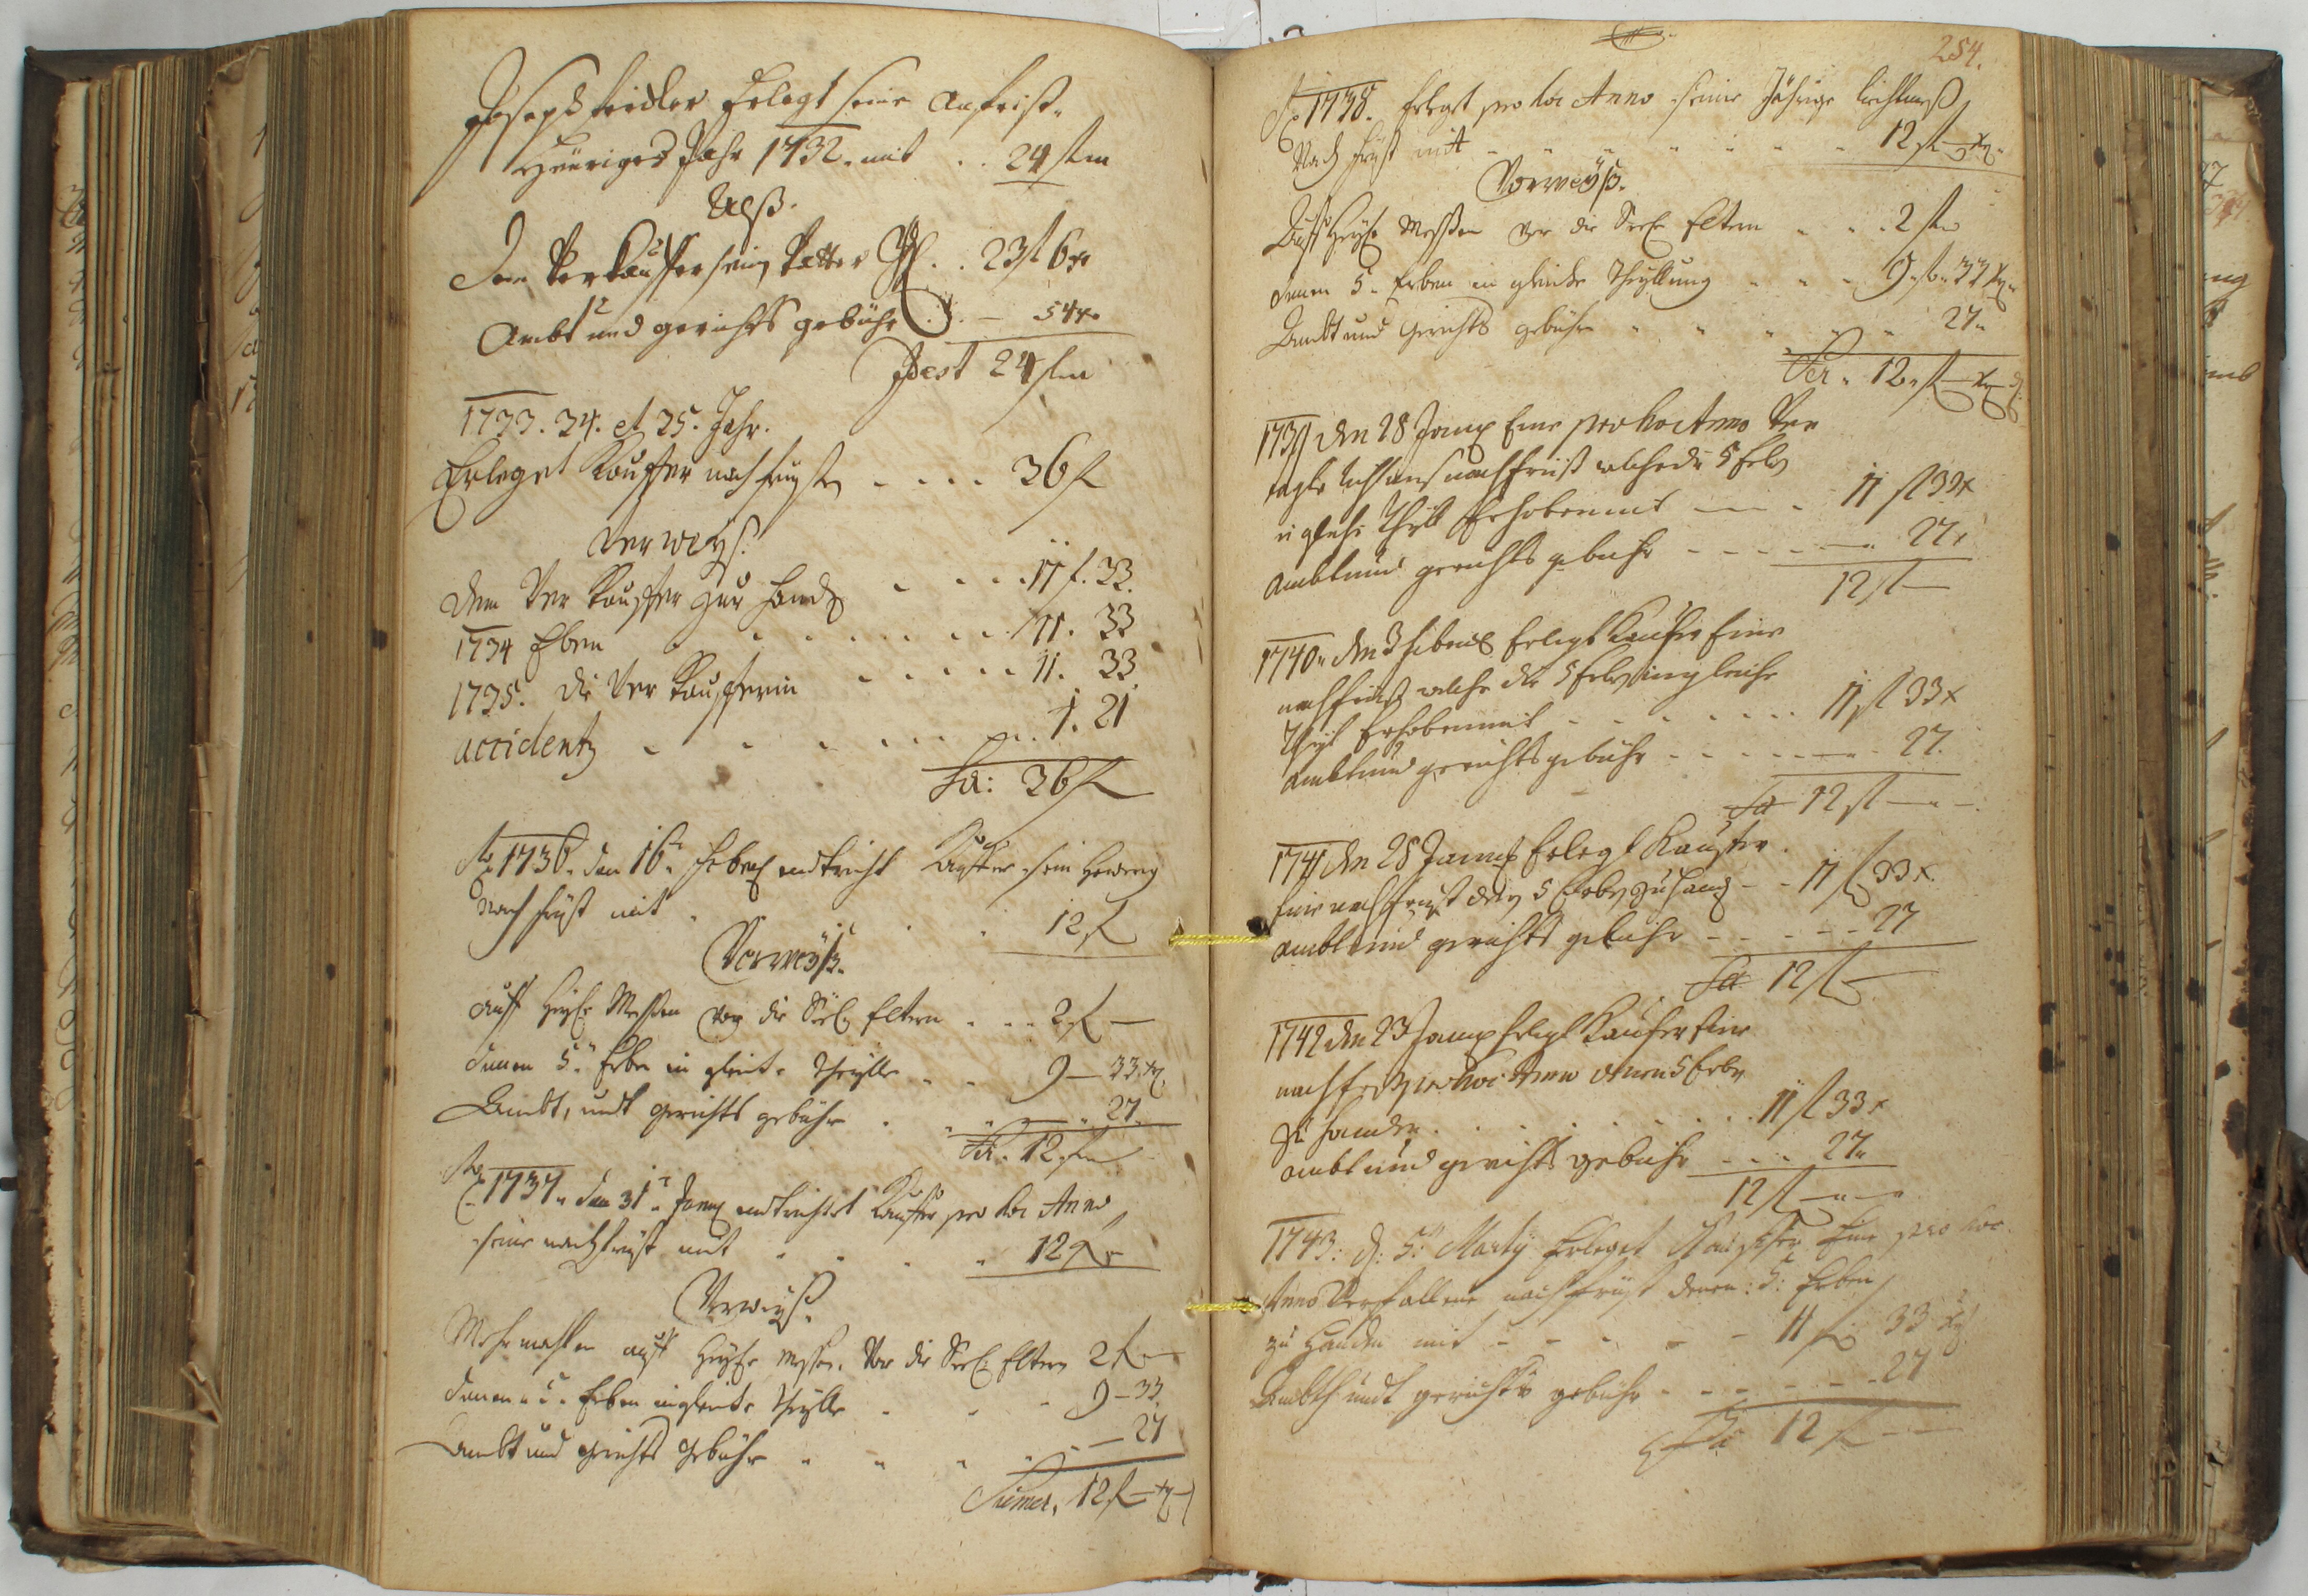 Joseph Fridler Erlegt seine Anfrist
Heüriges Jahr 1732. mit .. 24 fl
Alß.
Dem Verkauffer sein Vatter .. 23 fl 6 xr
Ambt und gerichts gebühr . — 54 xr
Facst 24 fl
1733. 34. et 35. Jahr.
Erleget Kauffer nachfryst . . . . 36 fl
Verweyß.
dem Verkauffer zur handt . . . . 11 f. 33.
1734 Eben . . . . . . 11. 33
1735. die Verkaufferin . . . . . 11. 33
accidentz . . . . . . 1. 21
Sa: 36 fl
Ao 1736. den 16t Febru endtricht Kauffer sein
nachfryst mit . . . 12 fl
Verweyß.
auff Heyl. Messen vor die Seel. Eltern . . . 2 fl —
denen 5. Erben in gleicher Theylle . . 9 — 33 xr
Ambt, undt gerichts gebühr . . — 27.
Sa. 12 fl
Ao 1737. den 31t Jany endtrichtet Kauffer pro hoc Anno
seine nachfryst mit . . . . 12 fl
Verweyß.
Mehrmahlen auff Heyl. Messen. Vor die Seel. Eltern 2 fl —
denen 5. Erben in gleiche Theylle . . . 9 — 33.
Ambt und gerichts gebühr . . . . — 27
Sumer. 12 fl — xr
254.
Ao 1738. Erlegt pro hoc Anno seine Jährige
Nachfryst mit . . . . . . 12 fl — xr.
Verweyß.
Auff Heyl. Messen vor die Seel. Eltern . . . 2 fl
denen 5. Erben in gleicher Theyllung . . . 9. fl. 33 xr
Ambt und Gerichts gebühr . . . . . 27.
Sa. 12. fl — xr
1739 den 28 Jany Eine pro hoc Anno Ver
nachfrist welche die 5 Erben
in gleiche Theyll Erhoben mit — . 11 fl 33 x
Ambt und gerichts gebühr . . . . — 27.
12 fl —
1740. den 3 Februar Erlegt Kaufer Eine
nachfrist welche die 5 Erben in gleiche
Theyl Erhoben mit . . . . . . 11 fl 33 x
Ambt und gerichts gebühr . . . . — 27.
Sa 12 fl —
1741 den 28 Januar Erlegt Kaufer
Eine nachfrist den 5 Erben zu handt . . 11 fl 33 x.
Ambt und gerichts gebühr . . . . . 27
Sa 12 fl —
1742 den 23 Jany Erlegt Kaufer Eine
nachfrist pro hoc Anno denen 5 Erben
zu handen . . . . . . 11 fl 33 x
Ambt und gerichts gebühr . . . 27.
12 fl —
1743: d: 5t Martÿ Erleget Kauffer Eine pro hoc
Anno Verfallene nachfryst denen: 5: Erben
zu Handen mit - - - - - 11 fl 33 xr
Ambth undt gerichts gebühr - - - - - 27
Sa 12 fl —